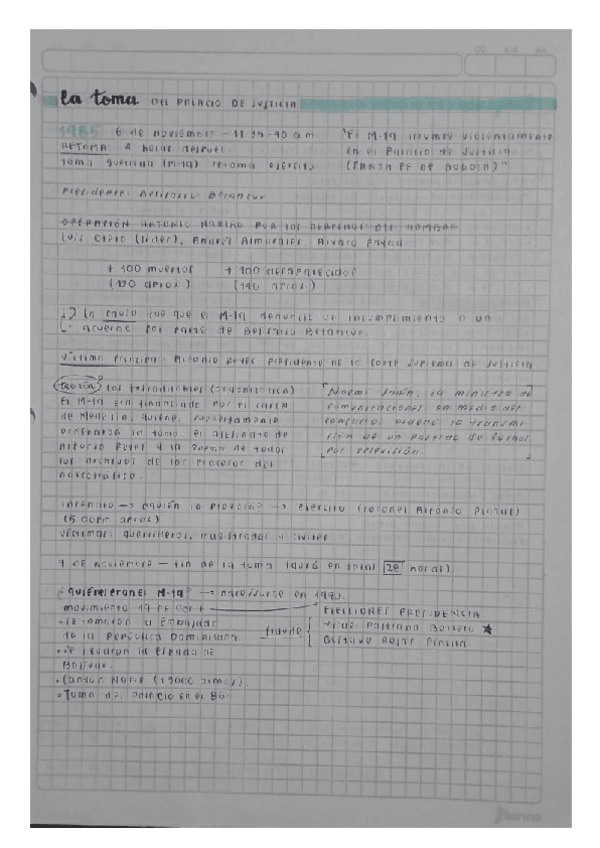 DD MM AA
la toma DEL PALACIO DE JUSTICIA
1985 6 de noviembre - 11:35-40 a.m
RETOMA 4 horas después
toma guerrilla (M-19) retoma ejército
"El M-19 irrumpe violentamente
en el Palacio de Justicia
(SANTA FE DE BOGOTÁ)"
Presidente: Belisario Betancur
OPERACIÓN ANTONIO NARIÑO POR LOS DERECHOS DEL HOMBRE
Luis Otero (líder), Andrés Almarales, Alvaro Fayad
+ 100 muertos + 100 desaparecidos
(120 aprox.) (140 aprox.)
La causa fue que el M-19 denunció un incumplimiento a un
acuerdo por parte de Belisario Betancur.
víctima principal: Alfonso Reyes presidente de la Corte Suprema de Justicia
(teoría) los extraditables (organización)
El M-19 era financiado por el cartel
de Medellín, quienes supuestamente
ordenaron la toma el asesinato de
Alfonso Reyes y la quema de todos
los archivos de los procesos del
narcotráfico.
Noemí Sanín, la ministra de
comunicaciones en medio del
conflicto, ordenó la transmi
sión de un partido de fútbol
por televisión.
incendio → ¿quién lo provocó? → ejército (coronel Alfonso Plazas)
víctimas: guerrilleros, magistrados y civiles
7 de noviembre - fin de la toma (duró en total 28 horas)
¿quiénes eran el M-19? → nacen en 1970.
movimiento 19 de abril
• se tomaron la Embajada
de la República Dominicana
• se robaron la Espada de
Bolívar.
• Cantón Norte (+5000 armas).
• Toma del palacio en el 85.
fraude
ELECCIONES PRESIDENCIA
Misael Pastrana Borrero ★
Gustavo Rojas Pinilla
Norma